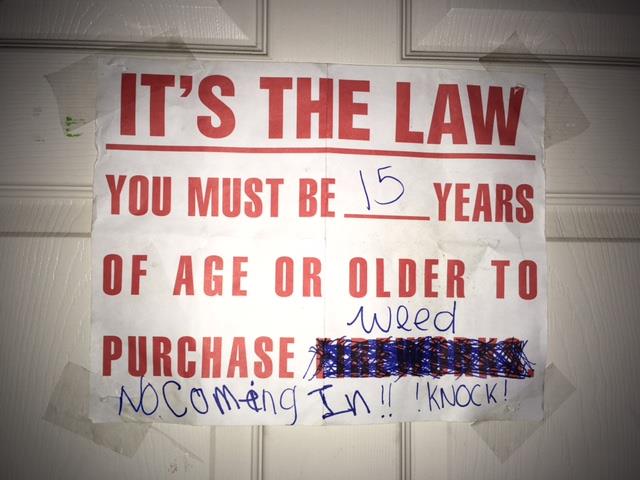 IT'S THE LAW
YOU MUST BE 15 YEARS
OF AGE OR OLDER TO
weed
PURCHASE FIREWORKS.
No Coming In!! !KNOCK!